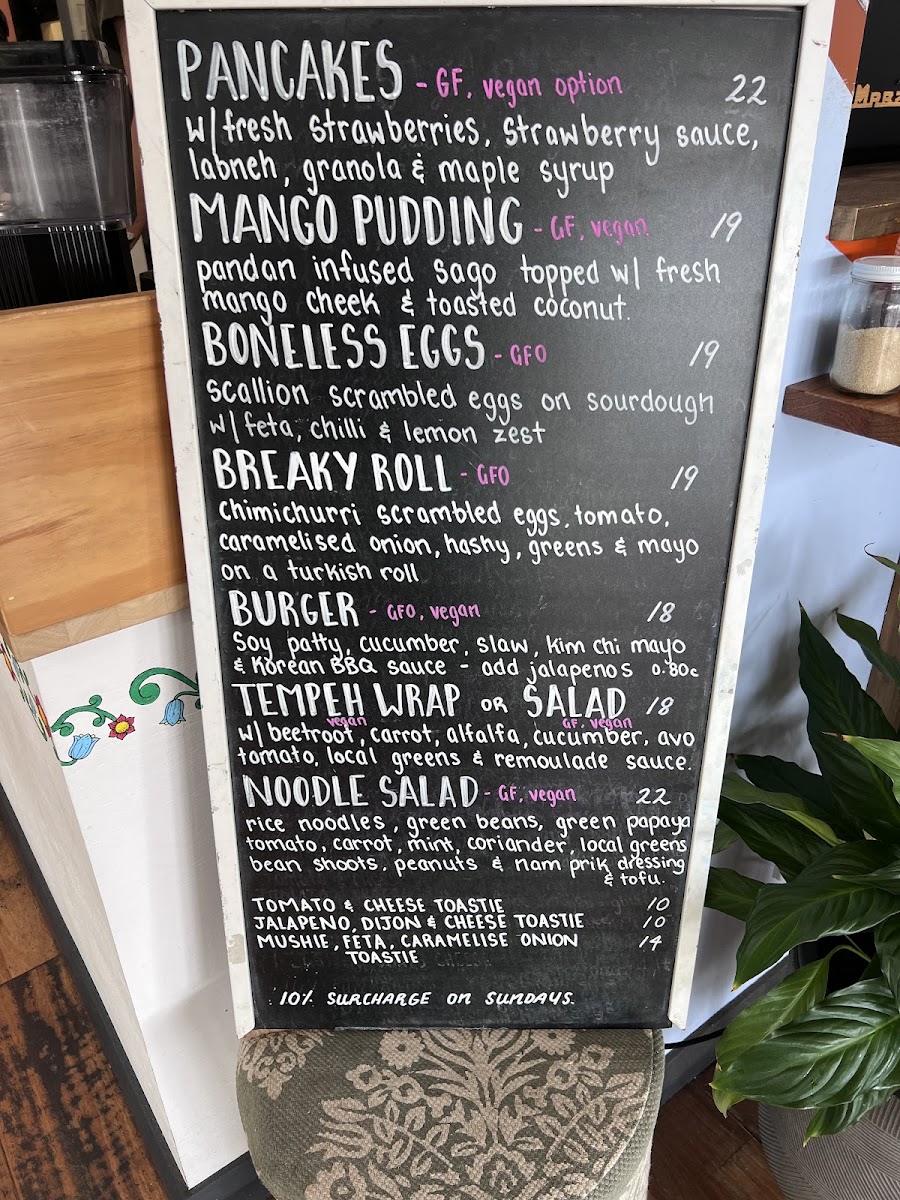 PANCAKES - GF, vegan option 22
w/ fresh strawberries, strawberry sauce,
labneh, granola & maple syrup
MANGO PUDDING - GF, vegan 19
pandan infused sago topped w/ fresh
mango cheek & toasted coconut.
BONELESS EGGS - GFO 19
scallion scrambled eggs on sourdough
w/ feta, chilli & lemon zest
BREAKY ROLL - GFO 19
chimichurri scrambled eggs, tomato,
caramelised onion, hashy, greens & mayo
on a turkish roll
BURGER - GFO, vegan 18
Soy patty, cucumber, slaw, kim chi mayo
& Korean BBQ sauce - add jalapenos 0.80c
TEMPEH WRAP OR SALAD 18
vegan GF, vegan
w/ beetroot, carrot, alfalfa, cucumber, avo
tomato, local greens & remoulade sauce.
NOODLE SALAD - GF, vegan 22
rice noodles, green beans, green papaya
tomato, carrot, mint, coriander, local greens
bean shoots, peanuts & nam prik dressing
& tofu.
TOMATO & CHEESE TOASTIE 10
JALAPENO, DIJON & CHEESE TOASTIE 10
MUSHIE, FETA, CARAMELISE ONION 14
TOASTIE
10% SURCHARGE ON SUNDAYS.